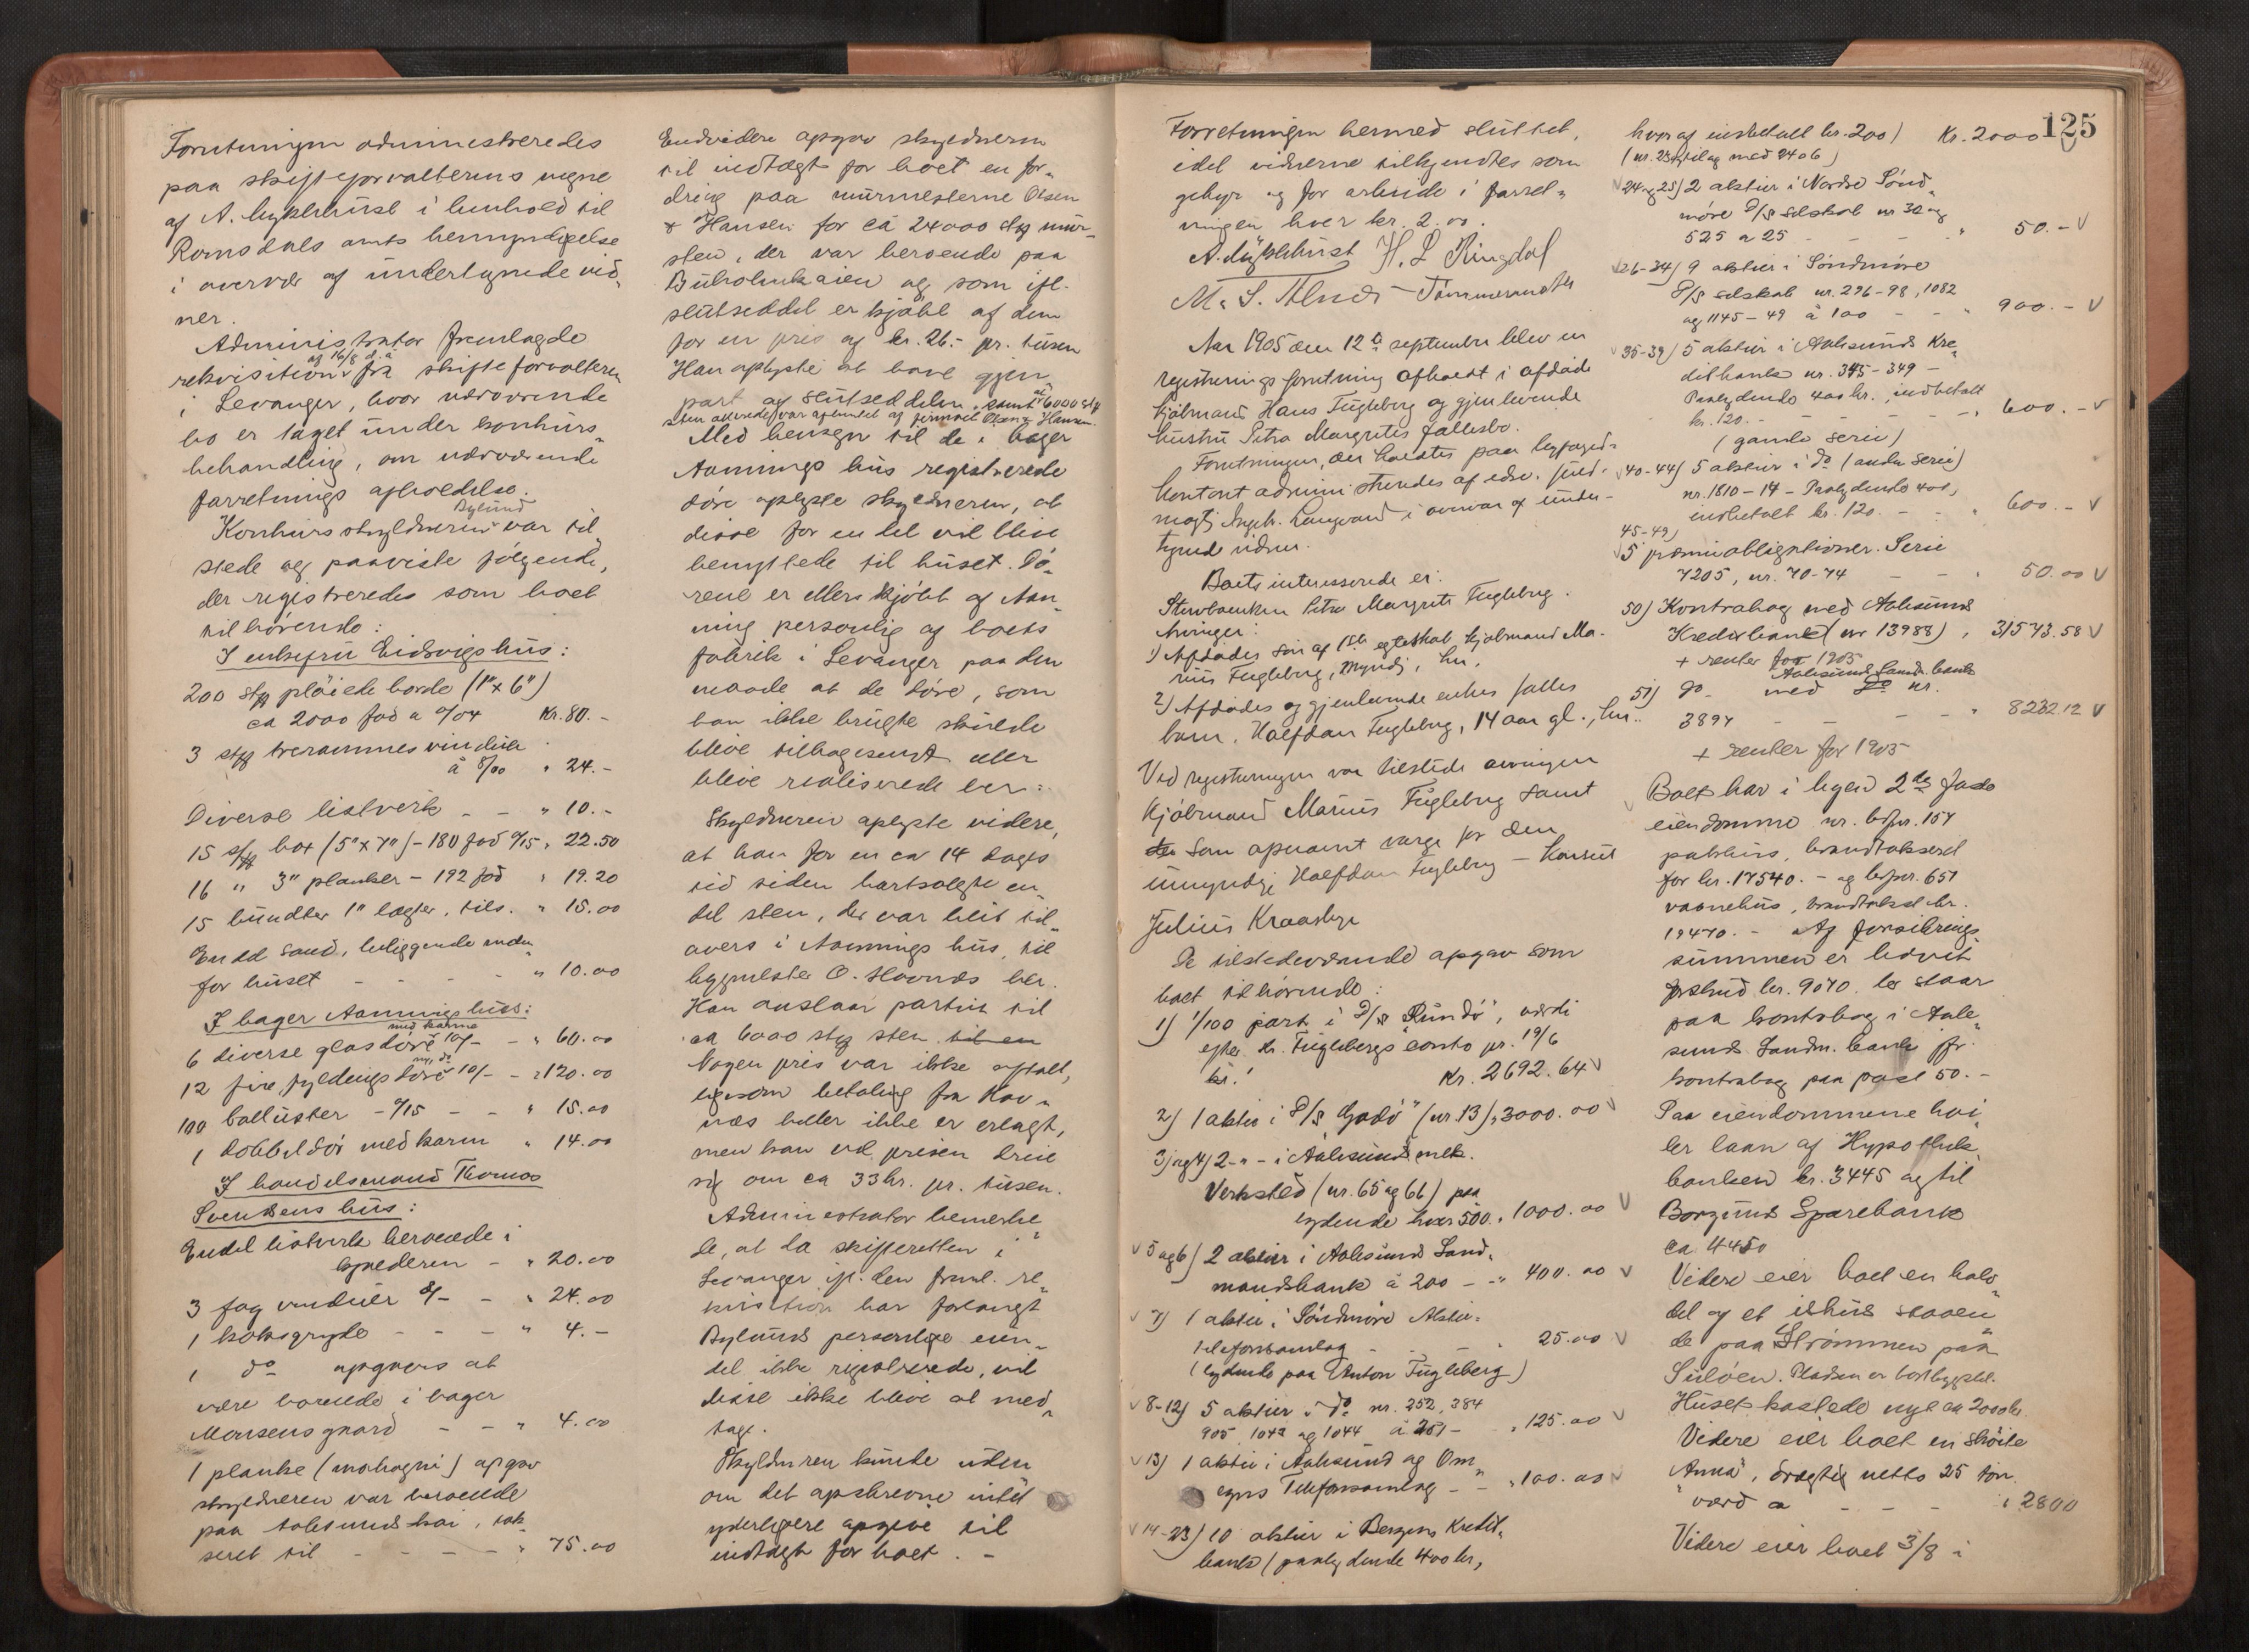 Forretningen administreredes
paa skifteforvalterens vegne
af A. Myklebust i henhold til
Romsdals amts bemyndigelse
i overvær af undertegnede vid„
ner.
Administrator fremlagde
rekvisition af 16/8 d. a. fra skifteforvalteren
i Levanger, hvor nærværende
bo er taget under konkurs„
behandling, om nærværende
forretnings afholdelse.
Konkursskyldneren Bylund var til„
stede og paaviste følgende,
der registreredes som boet
tilhørende:
I enkefru Eidsvigs hus:
200 stkr pløiede borde (1" x 6")
ca 2000 fod a 0/04 Kr. 80.-
3 stkr trerammes vinduer
à 8/00 " 24.-
Diverse listverk - - " 10.-
15 stkr box (5" x 7") - 180 fod 0/15 " 22.50
16 " 3" planker - 192 fod " 19.20
15 bundter 1" lægter, tils. " 15.00
En del sand, beliggende inden„
for huset - - - " 10.00
I bager Aannings hus:
6 diverse glasdøre med karme 10/- - " 60.00
12 fire fyldings døre m. do 10/- - " 120.00
100 balluster - 0/15 - - " 15.00
1 dobbeldør med karm " 14.00
I handelsmand Thomas
Svendsens hus:
Endel listverk beroende i
kjelderen - " 20.00
3 fag vinduer 8/- - " 24.00
1 koksgryde - - - " 4.-
1 do opgaves at
være beroende i bager
Monsens gaard - - " 4.00
1 planke (mahogni) opgav
skyldneren var beroende
paa toldbodskai, tak„
seret til - - - - " 75.00
Endvidere opgav skyldneren
til indtægt for boet en for„
dring paa murmesterne Olsen
& Hansen for ca 24000 stkr mur„
sten, der var beroende paa
Buholmkaien og som ifl.
slutseddel er kjøbt af dem
for en pris af kr. 26.- pr. tusen
Han oplyste at have gjen
part af slutseddelen, samt at 6000 stkr
sten allerede var afhentet af firmaet Olsen & Hansen.
Med hensyn til de i bager
Aannings hus registrerede
døre oplyste skyldneren, at
disse for en del vil blive
benyttede til huset. Dø„
rene er ellers kjøbt af Aan„
ning personlig af boets
fabrik i Levanger paa den
maade at de døre, som
han ikke brugte skulde
blive tilbagesendt eller
blive realiserede her.
Skyldneren oplyste videre,
at han for en ca 14 dages
tid siden bortsolgte en
del sten, der var blit til„
overs i Aannings hus, til
bygmester O. Hovnæs her.
Han anslaar partiet til
ca 6000 stkr sten. til en
Nogen pris var ikke aftalt,
ligesom betaling fra Hov„
næs heller ikke er erlagt,
men han vil prisen dreie
sig om ca 33 kr. pr. tusen.
Administrator bemerke„
de, at da skifteretten i
Levanger ifl. den freml. re„
kvisition har forlangt
Bylunds personlige eien„
del ikke registrerede, vil
disse ikke blive at med„
tage.
Skyldneren kunde uden
om det opskrevne intet
yderligere opgive til
indtægt for boet. -
125
Forretningen hermed sluttet,
idet vidnerne tilkjendtes som
gebyr og for arbeide i forret„
ningen hver kr. 2.00.
A. Myklebust H. L. Ringdal
M. S. Alnes Tømmermester
Aar 1905 den 12te september blev en
registrerings forretning afholdt i afdøde
kjøbmand Hans Fugleberg og gjenlevende
hustru Petra Margretes fællesbo.
Forretningen, der holdtes paa byfoged„
kontoret administreredes af edsv. fuld„
megtig Ingebr. Langvand i overvær af under„
tegnede vidner.
Boets interesserede er:
Stervboenken Petra Margrete Fugleberg.
Arvinger:
1) Afdødes søn af 1ste egteskab kjøbmand Ma„
rius Fugleberg, myndig, her.
2) Afdødes og gjenlevende enkes fælles
barn, Halfdan Fugleberg, 14 aar gl., her.
Ved registreringen var tilstede arvingen
kjøbmand Marius Fugleberg samt
den som opnævnt verge for den
umyndige Halfdan Fugleberg - Konsul
Julius Kraasbye
De tilstedeværende opgav som
boet tilhørende:
1) 1/100 part i D/S "Rundø", værdi
efter Kr. Fuglebergs conto pr. 19/6
kr.! Kr. 2692.64 V
2) 1 aktie i D/S "Godø" (nr. 13) " 3000.00 V
3) og 4) 2 - " - i Aalesunds mek.
Verksted (nr. 65 og 66) paa
lydende hver 500. " 1000.00 V
V 5 og 6) 2 aktier i Aalesunds Land„
mandsbank à 200 - - " 400.00 V
V 7) 1 aktie i Søndmøre Aktie„
telefonsamlag - - - " 25.00 V
(lydende paa Anton Fugleberg)
V 8-12) 5 aktier i do nr. 252, 384
905, 1042 og 1044 à 25/- " 125.00 V
V 13) 1 aktie i Aalesund og Om„
egns Telefonsamlag - - " 100.00 V
V 14-23) 10 aktier i Bergens Kredit„
bank (paalydende 400 kr,
hvoraf indbetalt kr. 200) Kr. 2000 V
(nr. 2397 tillæg med 2406)
V 24 og 25) 2 aktier i Nordre Sønd„
møre D/S selskab nr 32 og
525 a 25 - - - " 50.- V
V 26-34) 9 aktier i Søndmøre
D/S selskab nr. 296-98, 1082
og 1145-49 à 100 - - " 900.- V
V 35-39) 5 aktier i Aalesunds Kre„
ditbank nr. 345-349 -
Paalydende 400 kr., indbetalt
kr. 120. - - - - " 600.- V
(gamle serie)
V 40-44) 5 aktier i do (anden serie)
nr. 1810-14 - Paalydende 400,
indbetalt kr. 120. - - " 600.- V
45-49)
V 5 præmieobligationer. Serie
7205, nr. 70-74 - - " 50.00 V
50) Kontrabog med Aalesunds
Kreditbank (nr 13988) " 31573.58 V
+ renter for 1905
51) Do med Aalesunds Landm. bank nr.
3894 - - - - " 8232.12 V
+ renter for 1905
V Boet har i byen 2de faste
eiendomme nr. br.nr. 157
pakhus, brandtakseret
for kr. 17540.- og br.nr. 651
vaanehus, brandtakst kr.
19470.- Af forsikrings„
summen er hævet
forskud kr. 9070. der staar
paa kontrabog i Aale„
sunds Landm. bank jfr.
kontrabog paa post 50.-
Paa eiendommene hvi„
ler laan af Hypothek
banken kr. 3445 og til
Borgund Sparebank
ca. 4450
Videre eier boet en halv„
del af et ishus staaen„
de paa Strømmen paa
Suløen. Pladsen er bortbygslet.
Huset kostede nyt ca 2000 kr.
Videre eier boet en skøite
"Anna", drægtig netto 25 ton.
værd ca - - - " 2800
Videre eier boet 3/8 i